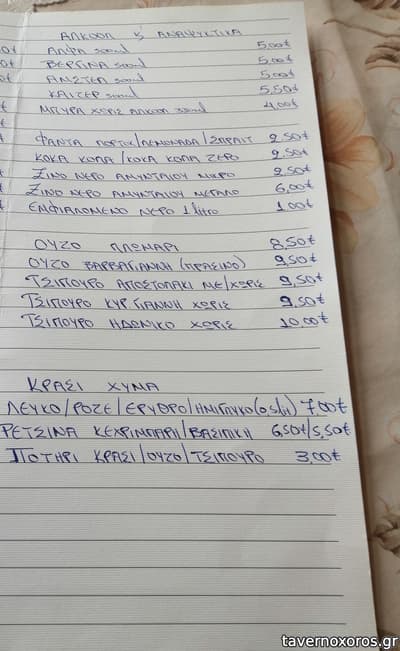 ΑΛΚΟΟΛ & ΑΝΑΨΥΚΤΙΚΑ
ΑΛΦΑ 500ml 5,00€
ΒΕΡΓΙΝΑ 500ml 5,00€
ΑΜΣΤΕΛ 500ml 5,00€
ΚΑΙΖΕΡ 500ml 5,50€
ΜΠΥΡΑ ΧΩΡΙΣ ΑΛΚΟΟΛ 330ml 4,00€
ΦΑΝΤΑ ΠΟΡΤΟΚ/ΛΕΜΟΝΑΔΑ/ΣΠΡΑΙΤ 2,50€
ΚΟΚΑ ΚΟΛΑ/ΚΟΚΑ ΚΟΛΑ ΖΕΡΟ 2,50€
ΞΙΝΟ ΝΕΡΟ ΑΜΥΝΤΑΙΟΥ ΜΙΚΡΟ 2,50€
ΞΙΝΟ ΝΕΡΟ ΑΜΥΝΤΑΙΟΥ ΜΕΓΑΛΟ 6,00€
ΕΜΦΙΑΛΩΜΕΝΟ ΝΕΡΟ 1 litro 1,00€
ΟΥΖΟ ΠΛΩΜΑΡΙ 8,50€
ΟΥΖΟ ΒΑΡΒΑΓΙΑΝΝΗ (ΠΡΑΣΙΝΟ) 9,50€
ΤΣΙΠΟΥΡΟ ΑΠΟΣΤΟΛΑΚΙ ΜΕ/ΧΩΡΙΣ 9,50€
ΤΣΙΠΟΥΡΟ ΚΥΡ ΓΙΑΝΝΗ ΧΩΡΙΣ 9,50€
ΤΣΙΠΟΥΡΟ ΗΔΩΝΙΚΟ ΧΩΡΙΣ 10,00€
ΚΡΑΣΙ ΧΥΜΑ
ΛΕΥΚΟ/ΡΟΖΕ/ΕΡΥΘΡΟ/ΗΜΙΓΛΥΚΟ(0,5lit) 7,00€
ΡΕΤΣΙΝΑ ΚΕΧΡΙΜΠΑΡΗ/ΒΑΣΙΛΙΚΗ 6,50€/5,50€
ΠΟΤΗΡΙ ΚΡΑΣΙ/ΟΥΖΟ/ΤΣΙΠΟΥΡΟ 3,00€
tavernoxoros.gr